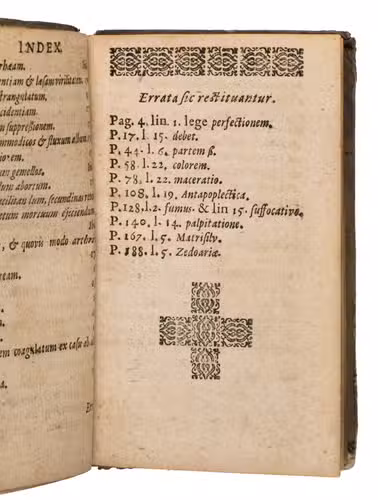 INDEX
rhæam.
entiam & læsam virilitatem.
trangulatum.
cidentiam.
n suppressionem.
mmodicos & fluxum album.
iorem.
an gemellos.
sum abortum.
etum mortuum ejiciendum
, & quovis modo arthri
eam.
em coagulatum ex casu ab al
Er
Errata sic restituantur.
Pag. 4. lin. 1. lege perfectionem.
P. 17. l. 15. debet.
P. 44. l. 6. partem ß.
P. 58. l. 22. colorem.
P. 78. l. 22. maceratio.
P. 108. l. 19. Antapoplectica.
P. 128. l. 2. fumus. & lin 15. suffocativo.
P. 140. l. 14. palpitatione.
P. 167. l. 5. Matrisilv.
P. 188. l. 5. Zedoariæ.